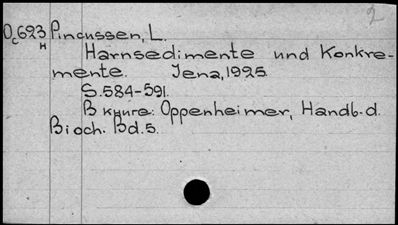 2
Oc623 Pincussen, L.
н
Harnsedimente und Konkre-
mente. Jena, 1925.
S. 584-591.
В книге: Oppenheimer, Handb. d.
Bioch. Bd. 5.